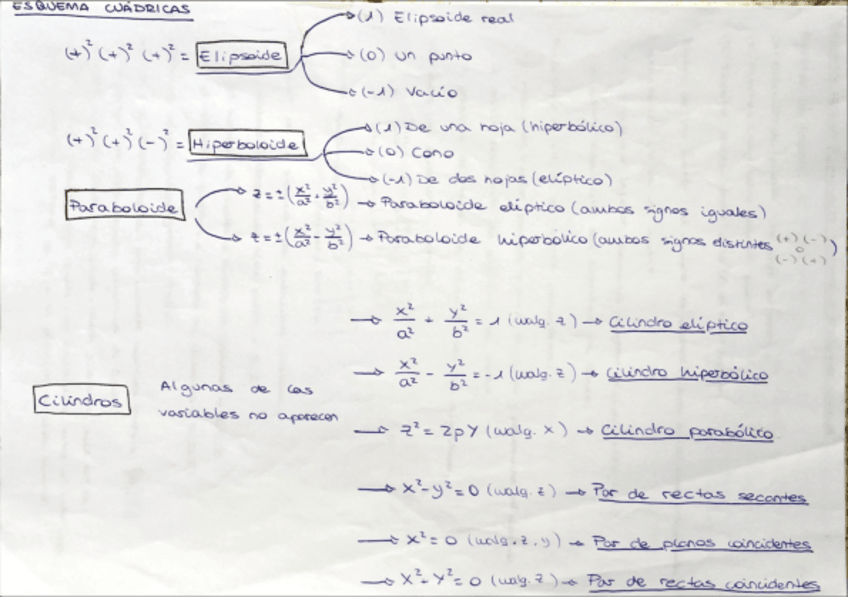 ESQUEMA CUÁDRICAS
(+)² (+)² (+)² = Elipsoide
(1) Elipsoide real
(0) un punto
(-1) Vacío
(+)² (+)² (-)² = Hiperboloide
(1) De una hoja (hiperbólico)
(0) Cono
(-1) De dos hojas (elíptico)
Paraboloide
z = ± (x²/a² + y²/b²) → Paraboloide elíptico (ambos signos iguales)
z = ± (x²/a² - y²/b²) → Paraboloide hiperbólico (ambos signos distintos (+) (-) o (-) (+))
Cilindros
Algunas de las
variables no aparecen
→ x²/a² + y²/b² = 1 (walg. z) → Cilindro elíptico
→ x²/a² - y²/b² = -1 (walg. z) → Cilindro hiperbólico
→ z² = 2py (walg. x) → Cilindro parabólico
→ x² - y² = 0 (walg. z) → Par de rectas secantes
→ x² = 0 (walg. z, y) → Par de planos coincidentes
→ x² - y² = 0 (walg. z) → Par de rectas coincidentes